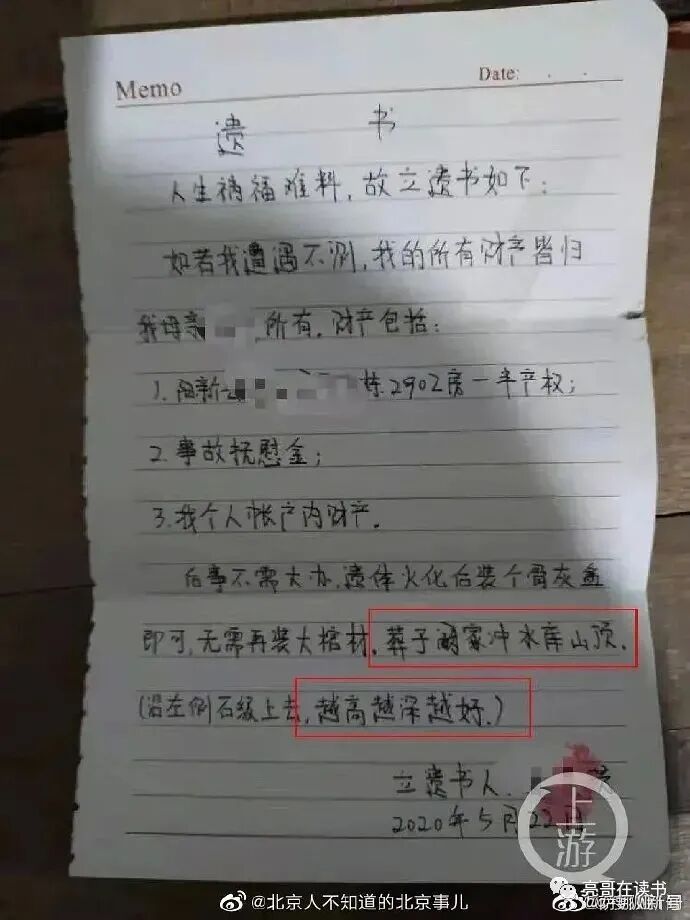 Memo
Date: . .
遗 书
人生祸福难料，故立遗书如下：
如若我遭遇不测，我的所有财产皆归
我母亲 所有，财产包括：
1.阳新 栋2902房一半产权；
2.事故抚慰金；
3.我个人帐户内财产。
后事不需大办，遗体火化后装个骨灰盒
即可，无需再装大棺材，葬于 家冲水库山顶，
（沿左侧石级上去，越高越深越好。）
立遗书人：
2020年5月22日
上游
@北京人不知道的北京事儿
亮哥在读书
新闻